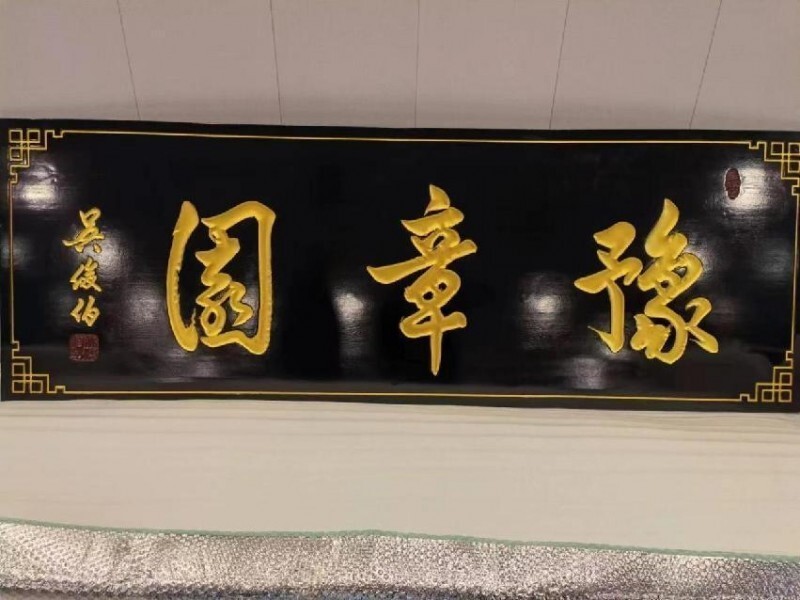 豫章園
吴俊伯